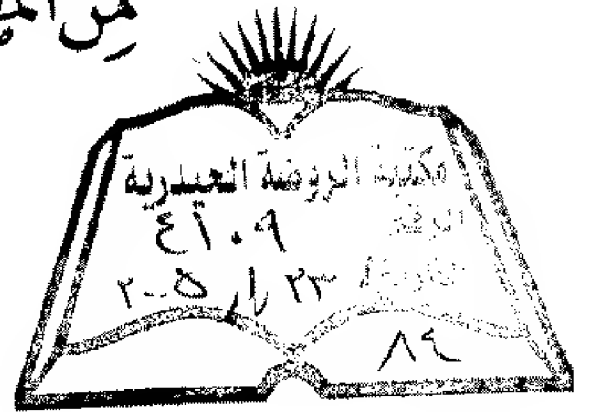 من
مكتبة الروضة الحيدرية
الرقم ٤١٠٩
التاريخ ٢٣ / ١ / ٢٠٠٥
٨٤